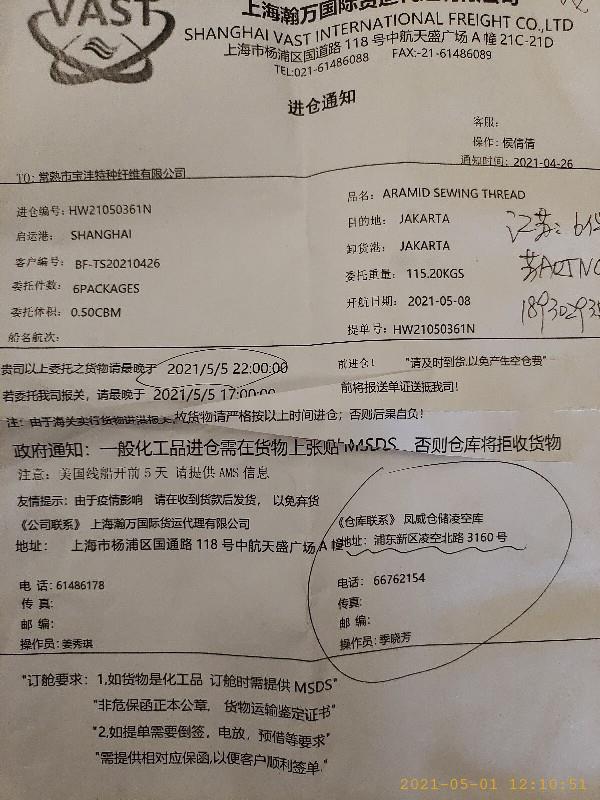 VAST
上海瀚万国际货运代理有限公司
SHANGHAI VAST INTERNATIONAL FREIGHT CO.,LTD
上海市杨浦区国道路 118 号中航天盛广场 A 幢 21C-21D
TEL:021-61486088 FAX:-21-61486089
进仓通知
客服:
操作: 侯倩倩
通知时间: 2021-04-26
TO: 常熟市宝沣特种纤维有限公司
品名: ARAMID SEWING THREAD
进仓编号: HW21050361N
目的地: JAKARTA
启运港: SHANGHAI
卸货港: JAKARTA
客户编号: BF-TS20210426
委托重量: 115.20KGS
委托件数: 6PACKAGES
开航日期: 2021-05-08
委托体积: 0.50CBM
提单号: HW21050361N
船名航次:
江苏:
贵司以上委托之货物请最晚于 2021/5/5 22:00:00 前进仓! "请及时到货,以免产生空仓费"
若委托我司报关, 请最晚于 2021/5/5 17:00:00 前将报送单证送抵我司!
注: 由于海关实行货物讲洪报关,故货物请严格按以上时间进仓; 否则后果自负!
政府通知: 一般化工品进仓需在货物上张贴"MSDS 否则仓库将拒收货物
注意: 美国线船开前 5 天 请提供 AMS 信息
友情提示: 由于疫情影响 请在收到货款后发货, 以免弃货
《公司联系》 上海瀚万国际货运代理有限公司
《仓库联系》 凤威仓储凌空库
地址: 上海市杨浦区国通路 118 号中航天盛广场 A 幢
地址: 浦东新区凌空北路 3160 号
电 话: 61486178
电话: 66762154
传 真:
传真:
邮 编:
邮 编:
操作员: 姜秀琪
操作员: 季晓芳
"订舱要求: 1.如货物是化工品 订舱时需提供 MSDS"
"非危保函正本公章, 货物运输鉴定证书"
"2.如提单需要倒签, 电放, 预借等要求"
"需提供相对应保函,以便客户顺利签单."
2021-05-01 12:10:51